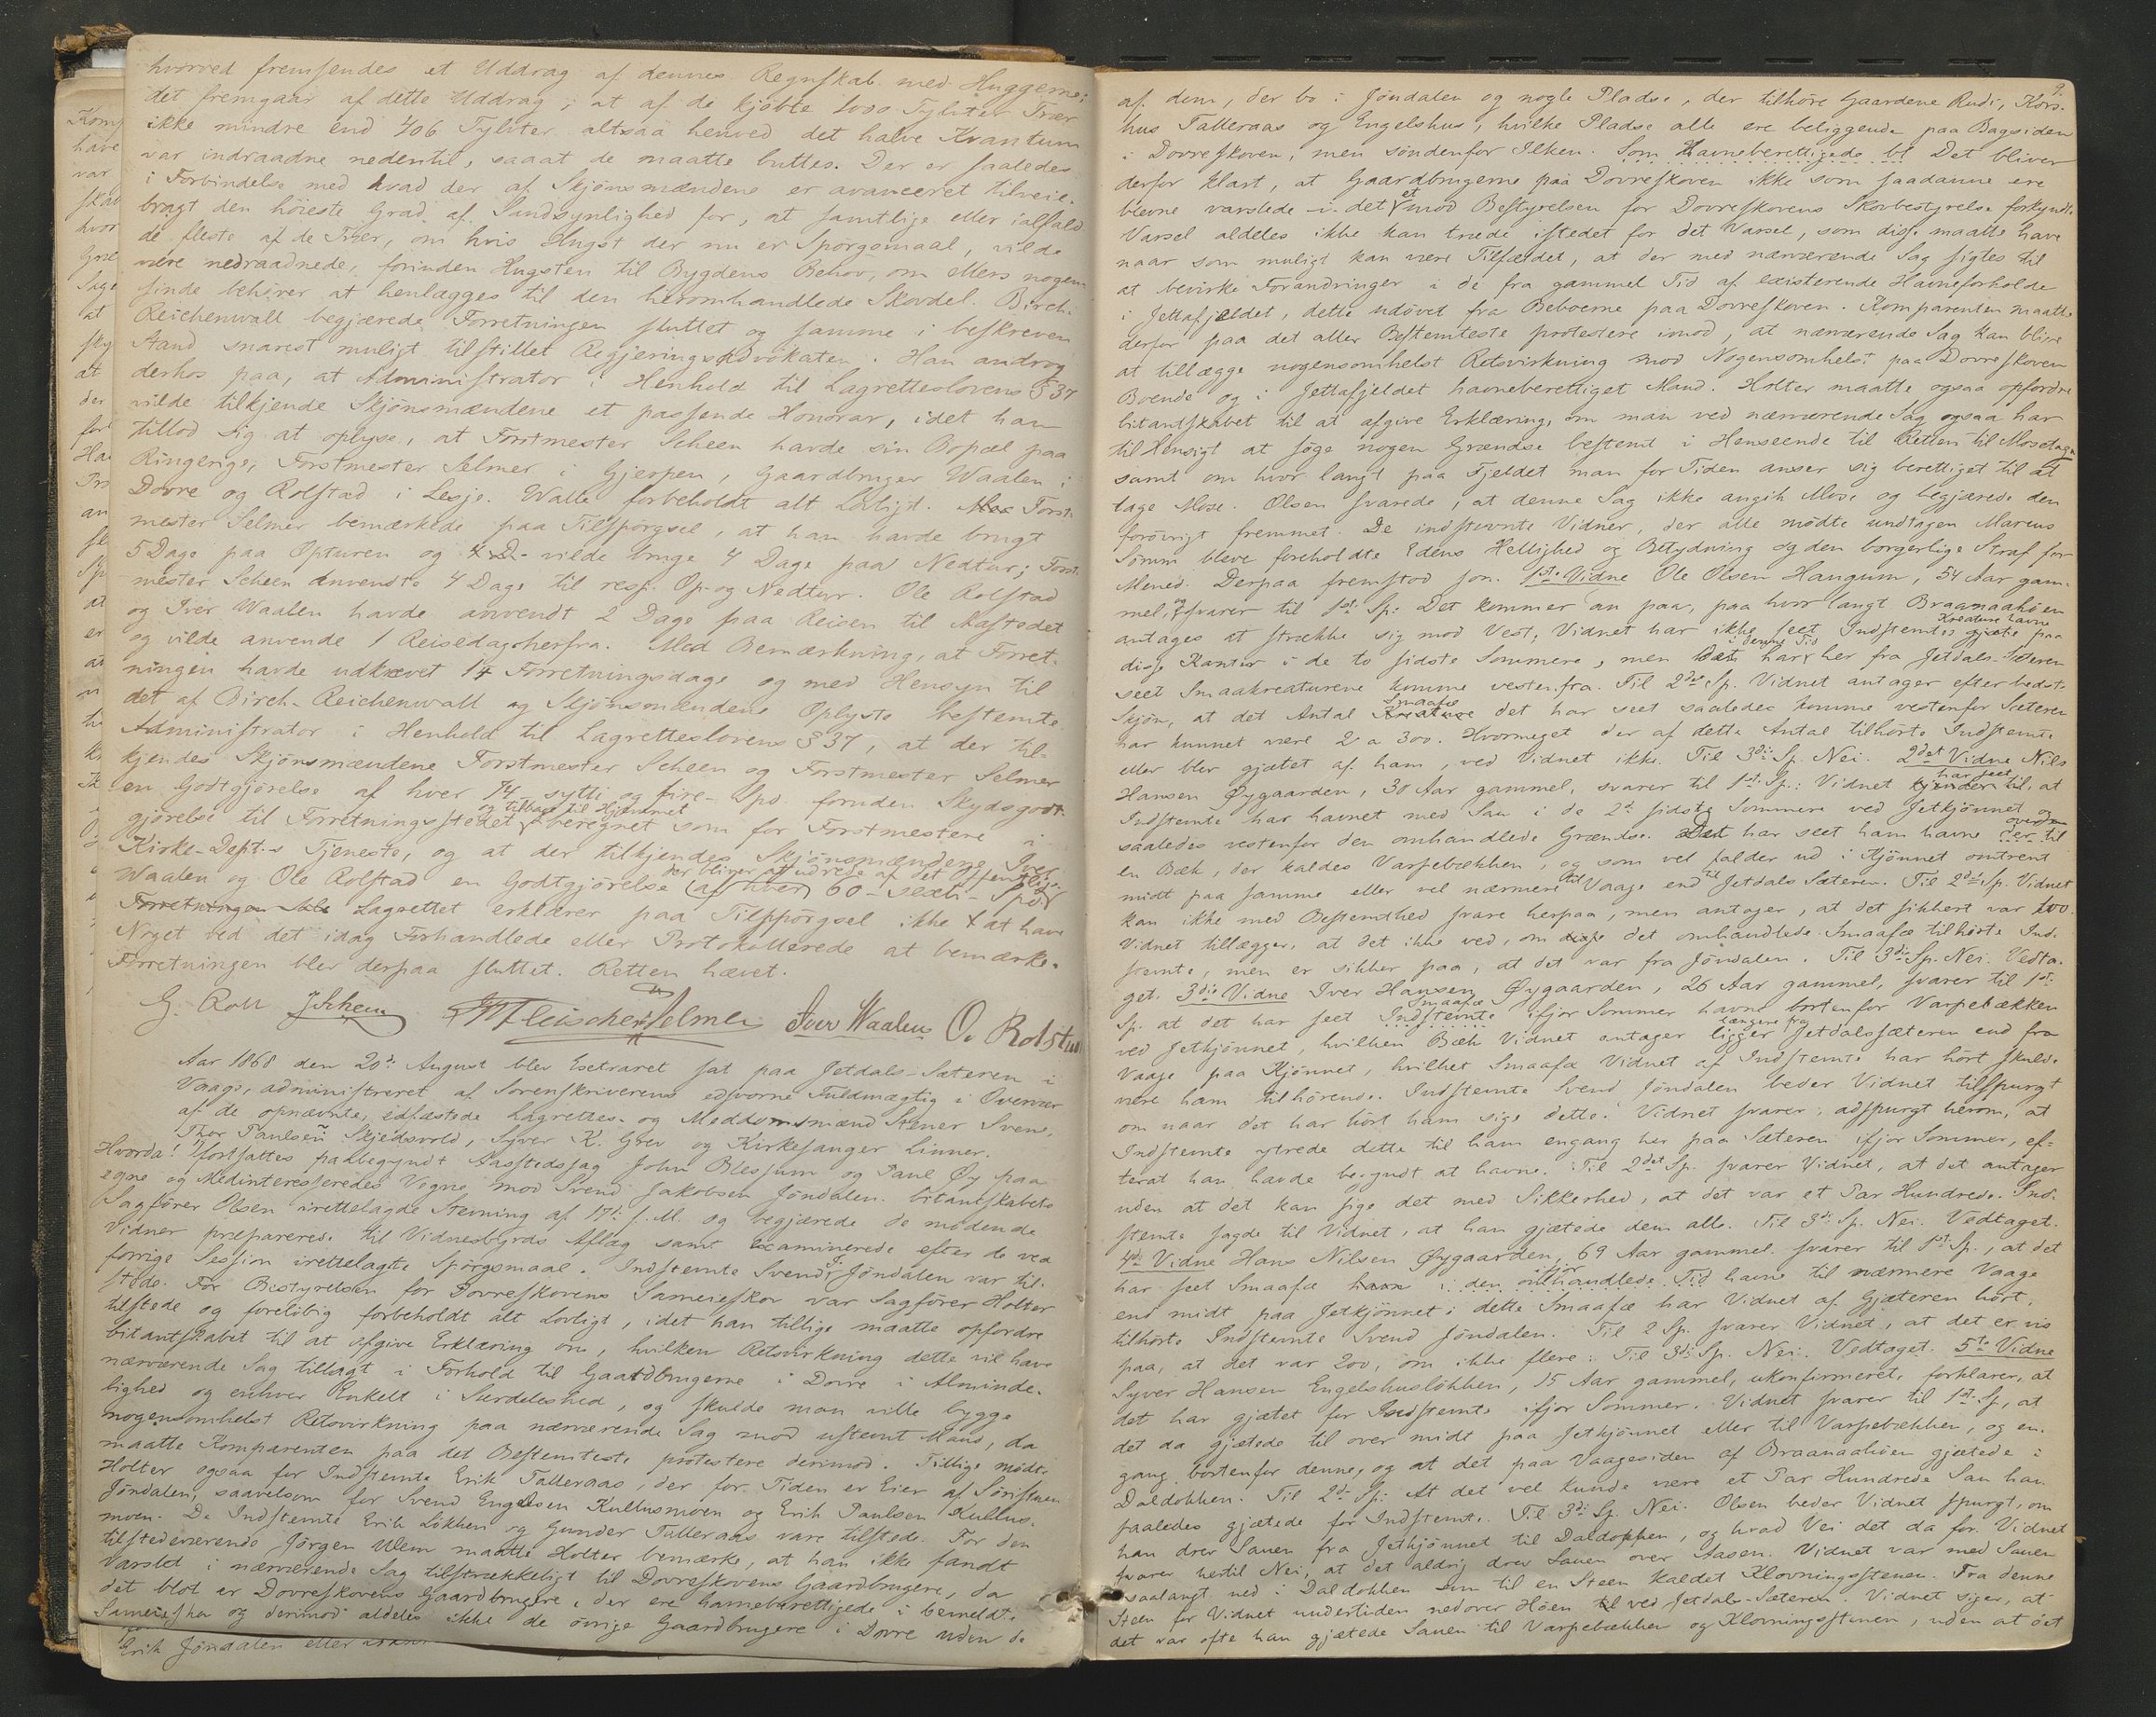 hvorved fremsendes et Uddrag af dennes Regnskab med Huggerne;
det fremgaar af dette Uddrag, at af de kjöbte 1000 Tylvter Trær
ikke mindre end 406 Tylvter altsaa henved det halve Kvantum
var indraadne nedentil, saaat de maatte buttes. Der er saaledes
i Forbindelse med hvad der af Skjönsmændene er avanceret tilveie-
bragt den höieste Grad af Sandsynlighed for, at samtlige eller ialfald
de fleste af de Trær, om hvis Hugst der nu er Spörgsmaal, vilde
være nedraadnede, forinden Hugsten til Bygdens Behov, om Ellers nogen-
sinde behöver at henlægges til den heromhandlede Skovdel. Birch-
Reichenwall begjærede Forretningen sluttet og samme i beskreven
Stand snarest muligt tilstillet Regjeringsadvokaten. Han androg
derhos paa, at Administrator i Henhold til Lagretteslovens § 37
vilde tilkjende Skjönsmændene et passende Honorar, idet han
tillod sig at oplyse, at Forstmester Scheen havde sin Bopæl paa
Ringerige, Forstmester Selmer i Gjerpen, Gaardbruger Waalen i
Dovre og Rolstad i Lesje. Walle forbeholdt alt Lovligt. Forst-
mester Selmer bemærkede paa Tilspörgsel, at han havde brugt
5 Dage paa Opturen og vilde bruge 4 Dage paa Nedtur; Forst-
mester Scheen anvendte 4 Dage til resp. Op- og Nedtur. Ole Rolstad
og Iver Waalen havde anvendt 2 Dage paa Reisen til Aastedet
og vilde anvende 1 Reisedag herfra. Med Bemærkning, at Forret-
ningen havde udkrævet 14 Forretningsdage og med Hensyn til
det af Birch-Reichenwall og Skjönsmændene Oplyste bestemte
Administrator i Henhold til Lagretteslovens § 37, at der til-
kjendes Skjönsmændene Forstmester Scheen og Forstmester Selmer
en Godtgjörelse af hver 74 sytti og fire Spd foruden Skydsgodt-
gjörelse til Forretningsstedet og tilbage til Hjemmet beregnet som for Forstmestere i
Kirke-Dept.s Tjeneste, og at der tilkjendes Skjönsmændene Iver
Waalen og Ole Rolstad en Godtgjörelse af hver 60 - sexti - Spd der bliver at udrede af det Offentlige
Forretningen Lagrettet erklærer paa Tilspörgsel ikke at have
Noget ved det idag Forhandlede eller Protokollerede at bemærke.
Forretningen blev derpaa sluttet. Retten hævet.
G. Roll JScheen Fleischer Selmer Iver Waalen O. Rolstad
Aar 1868 den 20de August blev Extraret sat paa Jetdals-Sæteren i
Vaage, administreret af Sorenskriverens edsvorne Fuldmægtig i Overvær
af de opnævnte, edfæstede Lagrettes- og Meddomsmænd Stener Svens,
Thor Paulsen Skjedsvold, Syver K. Grev og Kirkesanger Linner.
Hvorda! fortsattes paabegyndt Aastedssag John Blessum og Paul Öy paa
egne og Medinteresseredes Vegne mod Svend Jakobsen Jöndalen. Citantskabets
Sagförer Olsen irettelagde Stevning af 17de f. M. og begjærede de mödende
Vidner præparerede til Vidnesbyrds Aflæg samt examinerede efter de ved
forrige Session irettelagte Spörgsmaal. Indstevnte Svend J. Jöndalen var til-
stede. For Bestyrelsen for Dovreskovens Sameieskov var Sagförer Holter
tilstede og forelöbig forbeholdt alt Lovligt, idet han tillige maatte opfordre
Citantskabet til at afgive Erklæring om, hvilken Retsvirkning dette vil have
nærværende Sag tillagt i Forhold til Gaardbrugerne i Dovre i Alminde-
lighed og enhver Enkelt i Særdeleshed, og skulde man ville bygge
nogensomhelst Retsvirkning paa nærværende Sag mod ustevnt Mand, da
maatte Komparenten paa det Bestemteste protestere derimod. Tillige mödte
Holter ogsaa for Indstevnte Erik Talleraas, der for Tiden er Eier af
Jöndalen, saavelsom for Svend Engelsen Kullusmoen og Erik Paulsen Kullus-
moen. De Indstevnte Erik Lökken og Gunder Talleraas vare tilstede. For den
tilstedeværende Jörgen Ulem maatte Holter bemærke, at han ikke fandt
Varslet i nærværende Sag tilstrækkeligt til Dovreskovens Gaardbrugere, da
det blot er Dovreskovens Gaardbrugere, der ere havneberettigede i bemeldte
Sameieskov og derimod aldeles ikke de övrige Gaardbrugere i Dovre uden de
Erik Jöndalen eller
9.
af dem, der bo i Jöndalen og nogle Pladse, der tilhöre Gaardene Rudi, Kors-
hus Talleraas og Engelshus, hvilke Pladse alle ere beliggende paa Bagsiden
i Dovreskoven, men söndenfor Ilken. Som Havneberettigede bl Det bliver
derfor klart, at Gaardbrugerne paa Dovreskoven ikke som saadanne ere
blevne varslede i det et mod Bestyrelsen for Dovreskovens Skovbestyrelse forkyndt
Varsel aldeles ikke kan træde istedet for det Varsel, som disse maatte have
naar som muligt kan være Tilfældet, at der med nærværende Sag sigtes til
at bevirke Forandringer i de fra gammel Tid af existerende Havneforholde
i Jettafjeldet, dette udövet fra Beboerne paa Dovreskoven. Komparenten maatte
derfor paa det aller Bestemteste protestere imod, at nærværende Sag kan blive
at tillægge nogensomhelst Retsvirkning mod Nogensomhelst paa Dovreskoven
Boende og i Jettafjeldet havneberettiget Mand. Holter maatte ogsaa opfordre
Citantskabet til at afgive Erklæring, om man ved nærværende Sag ogsaa har
til Hensigt at söge nogen Grændse bestemt i Henseende til Retten til Mosetag
samt om hvor langt paa Fjeldet man for Tiden anser sig berettiget til at
tage Mose. Olsen svarede, at denne Sag ikke angik Mose og begjærede den
forövrigt fremmet. De indstevnte Vidner, der alle mödte undtagen Marcus
Sömm bleve foreholdte Edens Hellighed og Betydning og den borgerlige Straf for
Mened. Derpaa fremstod som 1ste Vidne Ole Olsen Haugum, 54 Aar gam-
mel, og svarer til 1st Sp: Det kommer an paa, paa hvor langt Braanaahöen
antages at strække sig mod Vest; Vidnet har ikke seet Indstemtes Kreature havne gjæte paa
disse Kanter i de to sidste Sommere, men har i denne Tid her fra Jetdals-Sæteren
seet Smaakreaturene komme vestenfra. Til 2det Sp. Vidnet antager efter bedste
Skjön, at det Antal Smaafæ Kreature det har seet saaledes komme vestenfor Sæteren
har kunnet være 2 a 300. Hvormeget der af dette Antal tilhörte Indstemte
eller blev gjætet af ham, ved Vidnet ikke. Til 3die Sp. Nei. 2det Vidne Nils
Hansen Öygaarden, 30 Aar gammel, svarer til 1st Sp.: Vidnet har seet kjender til, at
Indstemte har havnet med Sau i de 2de sidste Sommere ved Jetkjönnet og
saaledes vestenfor den omhandlede Grændse. Det har seet ham havne over der til
en Bæk, der kaldes Varpebækken, og som vel falder ud i Kjönnet omtrent
midt paa samme eller vel nærmere til Vaage end til Jetdals Sæteren. Til 2det Sp. Vidnet
kan ikke med Bestemthed svare herpaa, men antager, at det sikkert var 100.
Vidnet tillægger, at det ikke ved, om det omhandlede Smaafæ tilhörte Ind-
stemte, men er sikker paa, at det var fra Jöndalen. Til 3die Sp. Nei. Vedta-
get. 3die Vidne Iver Hansen Öygaarden, 26 Aar gammel, svarer til 1st
Sp. at det har seet Indstemte Smaafæ ifjor Sommer havne bortenfor Varpebækken
ved Jetkjönnet, hvilken Bæk Vidnet antager ligger længere fra Jetdalssæteren end fra
Vaage paa Kjönnet, hvilket Smaafæ Vidnet af Indstemte har hört skulde
være ham tilhörende. Indstemte Svend Jöndalen beder Vidnet tilspurgt
om naar det har hört ham sige dette. Vidnet svarer, adspurgt herom, at
Indstemte ytrede dette til ham engang her paa Sæteren ifjor Sommer, ef-
terat han havde begyndt at havne. Til 2det Sp. svarer Vidnet, at det antager
uden at det kan sige det med Sikkerhed, at det var et Par Hundrede. Ind-
stemte sagde til Vidnet, at han gjætede dem alle. Til 3die Sp. Nei. Vedtaget.
4de Vidne Hans Nilsen Öygaarden, 69 Aar gammel. svarer til 1st Sp., at det
har seet Smaafæ ifjor i den omhandlede Tid havne til nærmere Vaage
end midt paa Jetkjönnet; dette Smaafæ har Vidnet af Gjæteren hört,
tilhörte Indstemte Svend Jöndalen. Til 2 Sp. svarer Vidnet, at det er vis
paa, at det var 200, om ikke flere. Til 3die Sp. Nei. Vedtaget. 5te Vidne
Syver Hansen Engelshuslökken, 15 Aar gammel, ukonfirmeret, forklarer, at
det har gjætet for Indstemte ifjor Sommer. Vidnet svarer til 1st Sp, at
det da gjætede til over midt paa Jetkjönnet eller til Varpebækken, og en-
gang bortenfor denne, og at det paa Vaagesiden af Braanaahöen gjætede i
Daldokken. Til 2det Sp: At det vel kunde være et Par Hundrede Sau han
saaledes gjætede for Indstemte. Til 3die Sp. Nei. Olsen beder Vidnet spurgt, om
han drev Sauen fra Jetkjönnet til Daldokken, og hvad Vei det da for. Vidnet
svarer hertil Nei, at det aldrig drev Sauen over Aasen. Vidnet var med Sauen
saalangt ned i Daldokken som til en Steen kaldet Klovningsstenen. Fra denne
Steen for Vidnet undertiden nedover Höen til ved Jetdals-Sæteren. Vidnet siger, at
det var ofte han gjætede Sauen til Varpebækken og Klovningsstenen, uden at det